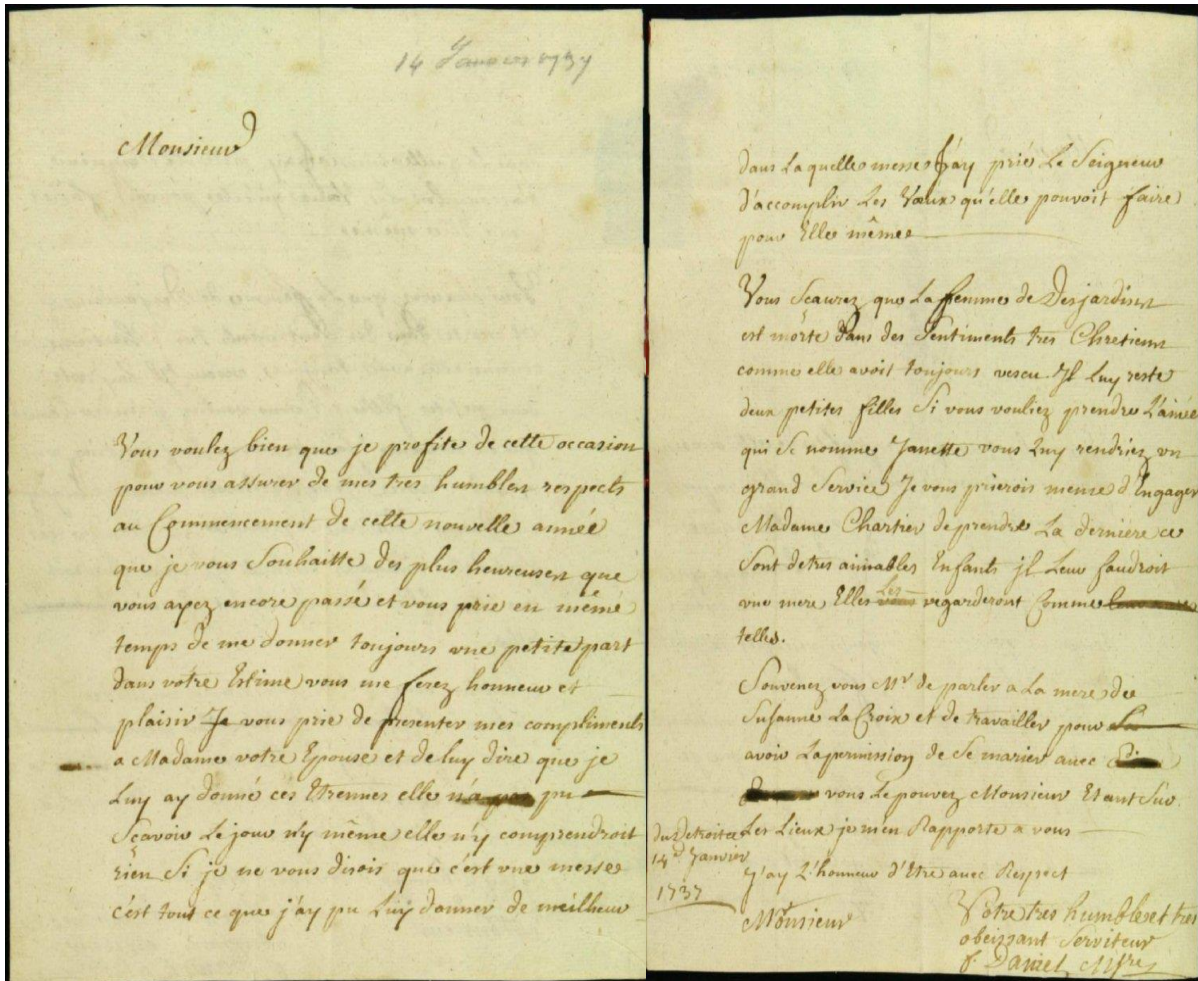 14 Janvier 1737
Monsieur
Vous voulez bien que je profite de cette occasion
pour vous assurer de mes tres humbles respects
au Commencement de cette nouvelle année
que je vous Souhaitte des plus heureuses que
vous ayez encore passé et vous prie en même
temps de me donner toujours une petite part
dans votre Estime vous me ferez honneur et
plaisir Je vous prie de presenter mes compliments
a Madame votre Epouse et de luy dire que je
Luy ay donné ces Etrennes elle n'a pas pu
Scavoir le jour n'y même elle n'y comprendroit
rien Si je ne vous disois que c'est une messe
c'est tout ce que j'ay pu Luy donner de meilleur
dans La quelle messe J'ay prié Le Seigneur
d'accomplir Les Vœux qu'elle pouvoit faire
pour Elle même
Vous Scaurez que La femme de Desjardins
est morte dans des Sentiments tres Chretiens
comme elle avoit toujours vescu. Il Luy reste
deux petites filles Si vous vouliez prendre L'ainée
qui Se nomme Janette vous Luy rendriez un
grand Service Je vous prierois meme d'Engager
Madame Chartier de prendre La derniere ce
Sont de tres aimables Enfants jl Leur faudroit
une mere Elles Les vous regarderont Comme
telles.
Souvenez vous Mr de parler a La mere de
Susanne La Croix et de travailler pour
avoir La permission de Se marier avec
vous Le pouvez Monsieur Etant Sur
Les Lieux je m'en Rapporte a vous
du Detroit ce
14e Janvier
1737
J'ay L'honneur d'Etre avec Respect
Monsieur
Votre tres humble et tres
obeissant Serviteur
f. Daniel Miſre